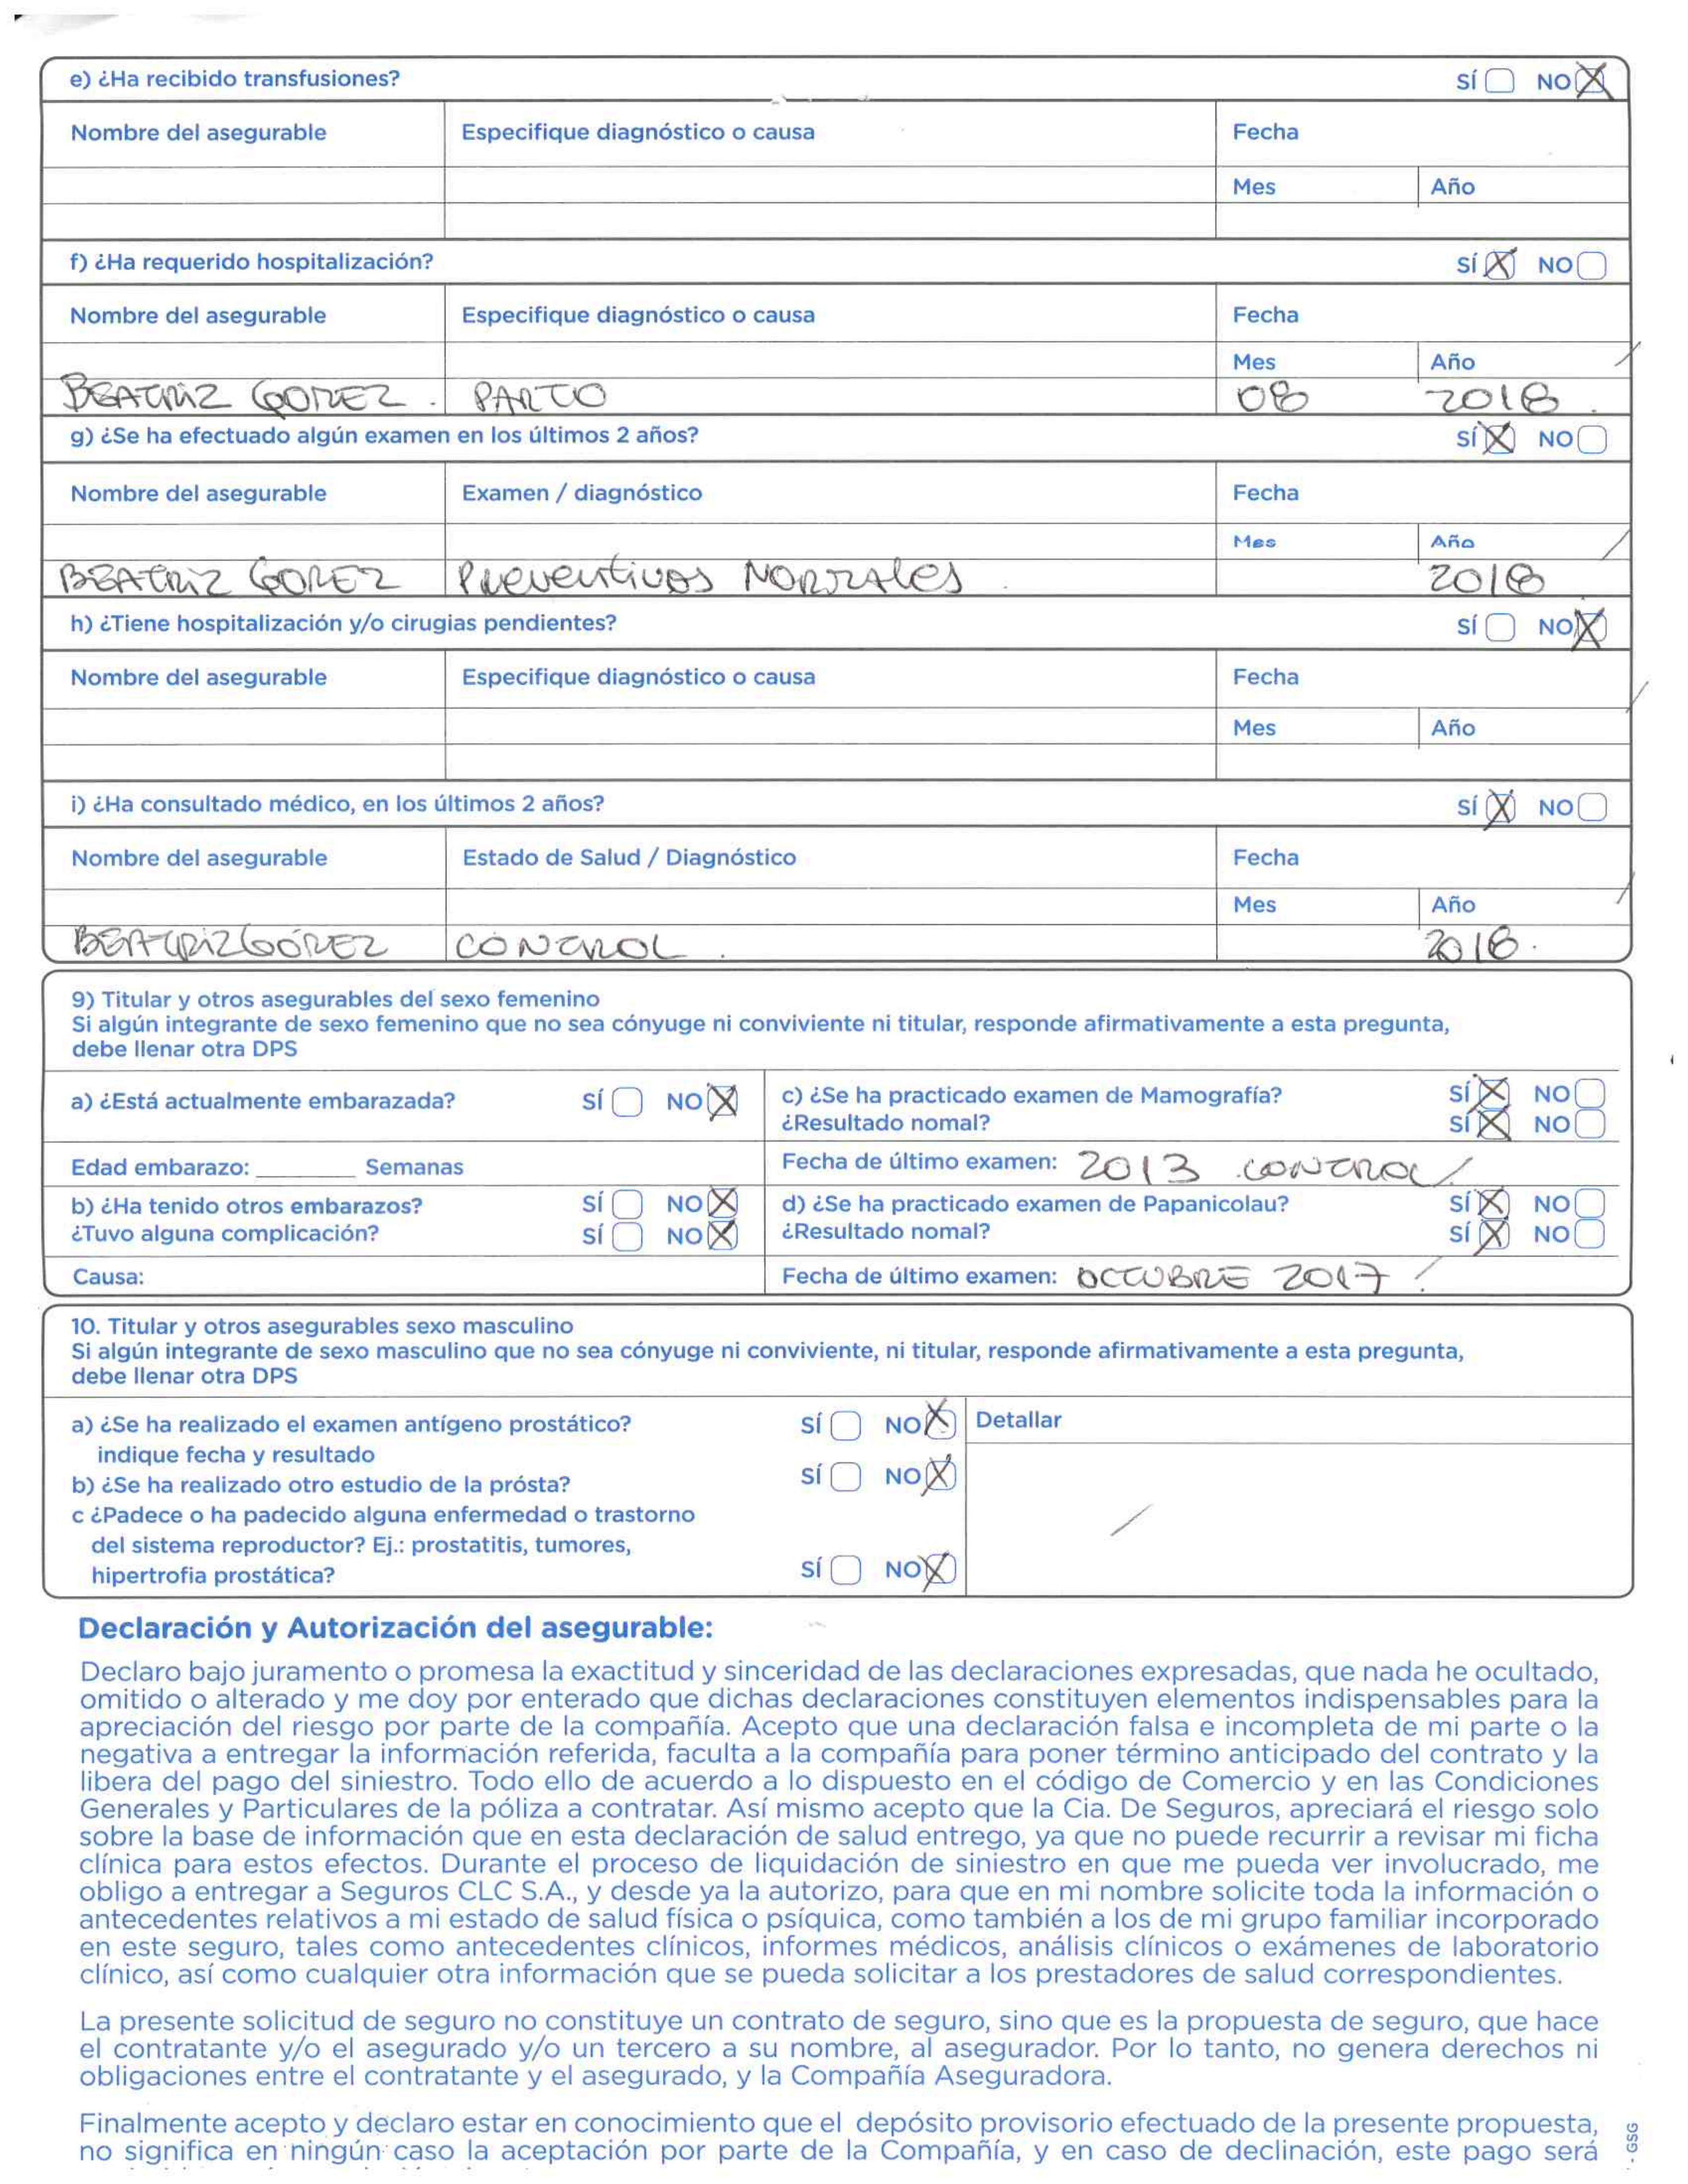 e) ¿Ha recibido transfusiones? SÍ NO X
Nombre del asegurable Especifique diagnóstico o causa Fecha
Mes Año
f) ¿Ha requerido hospitalización? SÍ X NO
Nombre del asegurable Especifique diagnóstico o causa Fecha
Mes Año
BEATRIZ GOMEZ. PARTO 08 2018.
g) ¿Se ha efectuado algún examen en los últimos 2 años? SÍ X NO
Nombre del asegurable Examen / diagnóstico Fecha
Mes Año
BEATRIZ GOMEZ Preventivos NORMALes. 2018
h) ¿Tiene hospitalización y/o cirugias pendientes? SÍ NO X
Nombre del asegurable Especifique diagnóstico o causa Fecha
Mes Año
i) ¿Ha consultado médico, en los últimos 2 años? SÍ X NO
Nombre del asegurable Estado de Salud / Diagnóstico Fecha
Mes Año
BEATRIZ GÓMEZ CONTROL. 2018.
9) Titular y otros asegurables del sexo femenino
Si algún integrante de sexo femenino que no sea cónyuge ni conviviente ni titular, responde afirmativamente a esta pregunta,
debe llenar otra DPS
a) ¿Está actualmente embarazada? SÍ NO X c) ¿Se ha practicado examen de Mamografía? SÍ X NO
¿Resultado nomal? SÍ X NO
Edad embarazo: ________ Semanas Fecha de último examen: 2013 CONTROL
b) ¿Ha tenido otros embarazos? SÍ NO X d) ¿Se ha practicado examen de Papanicolau? SÍ X NO
¿Tuvo alguna complicación? SÍ NO X ¿Resultado nomal? SÍ X NO
Causa: Fecha de último examen: OCTUBRE 2017
10. Titular y otros asegurables sexo masculino
Si algún integrante de sexo masculino que no sea cónyuge ni conviviente, ni titular, responde afirmativamente a esta pregunta,
debe llenar otra DPS
a) ¿Se ha realizado el examen antígeno prostático? SÍ NO X Detallar
indique fecha y resultado
b) ¿Se ha realizado otro estudio de la prósta? SÍ NO X
c ¿Padece o ha padecido alguna enfermedad o trastorno
del sistema reproductor? Ej.: prostatitis, tumores,
hipertrofia prostática? SÍ NO X
Declaración y Autorización del asegurable:
Declaro bajo juramento o promesa la exactitud y sinceridad de las declaraciones expresadas, que nada he ocultado,
omitido o alterado y me doy por enterado que dichas declaraciones constituyen elementos indispensables para la
apreciación del riesgo por parte de la compañía. Acepto que una declaración falsa e incompleta de mi parte o la
negativa a entregar la información referida, faculta a la compañía para poner término anticipado del contrato y la
libera del pago del siniestro. Todo ello de acuerdo a lo dispuesto en el código de Comercio y en las Condiciones
Generales y Particulares de la póliza a contratar. Así mismo acepto que la Cia. De Seguros, apreciará el riesgo solo
sobre la base de información que en esta declaración de salud entrego, ya que no puede recurrir a revisar mi ficha
clínica para estos efectos. Durante el proceso de liquidación de siniestro en que me pueda ver involucrado, me
obligo a entregar a Seguros CLC S.A., y desde ya la autorizo, para que en mi nombre solicite toda la información o
antecedentes relativos a mi estado de salud física o psíquica, como también a los de mi grupo familiar incorporado
en este seguro, tales como antecedentes clínicos, informes médicos, análisis clínicos o exámenes de laboratorio
clínico, así como cualquier otra información que se pueda solicitar a los prestadores de salud correspondientes.
La presente solicitud de seguro no constituye un contrato de seguro, sino que es la propuesta de seguro, que hace
el contratante y/o el asegurado y/o un tercero a su nombre, al asegurador. Por lo tanto, no genera derechos ni
obligaciones entre el contratante y el asegurado, y la Compañía Aseguradora.
Finalmente acepto y declaro estar en conocimiento que el depósito provisorio efectuado de la presente propuesta,
no significa en ningún caso la aceptación por parte de la Compañía, y en caso de declinación, este pago será
- GSG